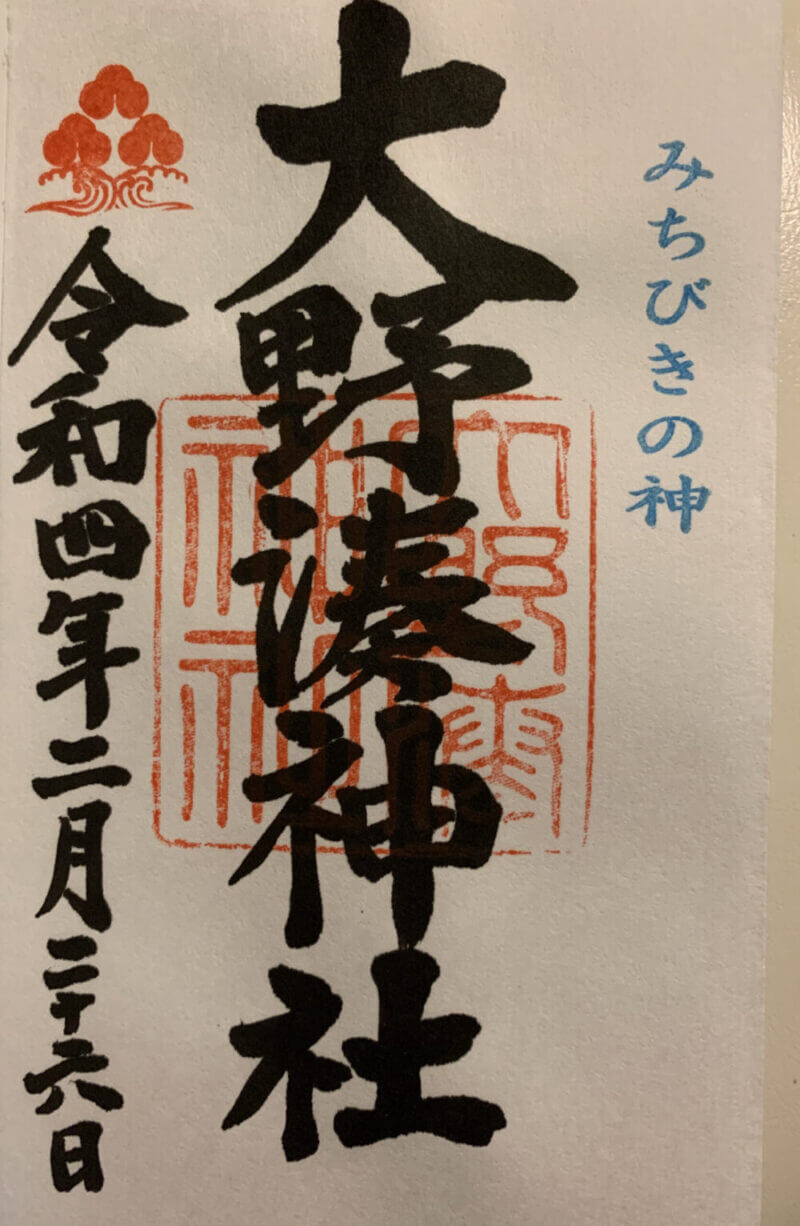 みちびきの神
大野湊神社
令和四年二月二十六日